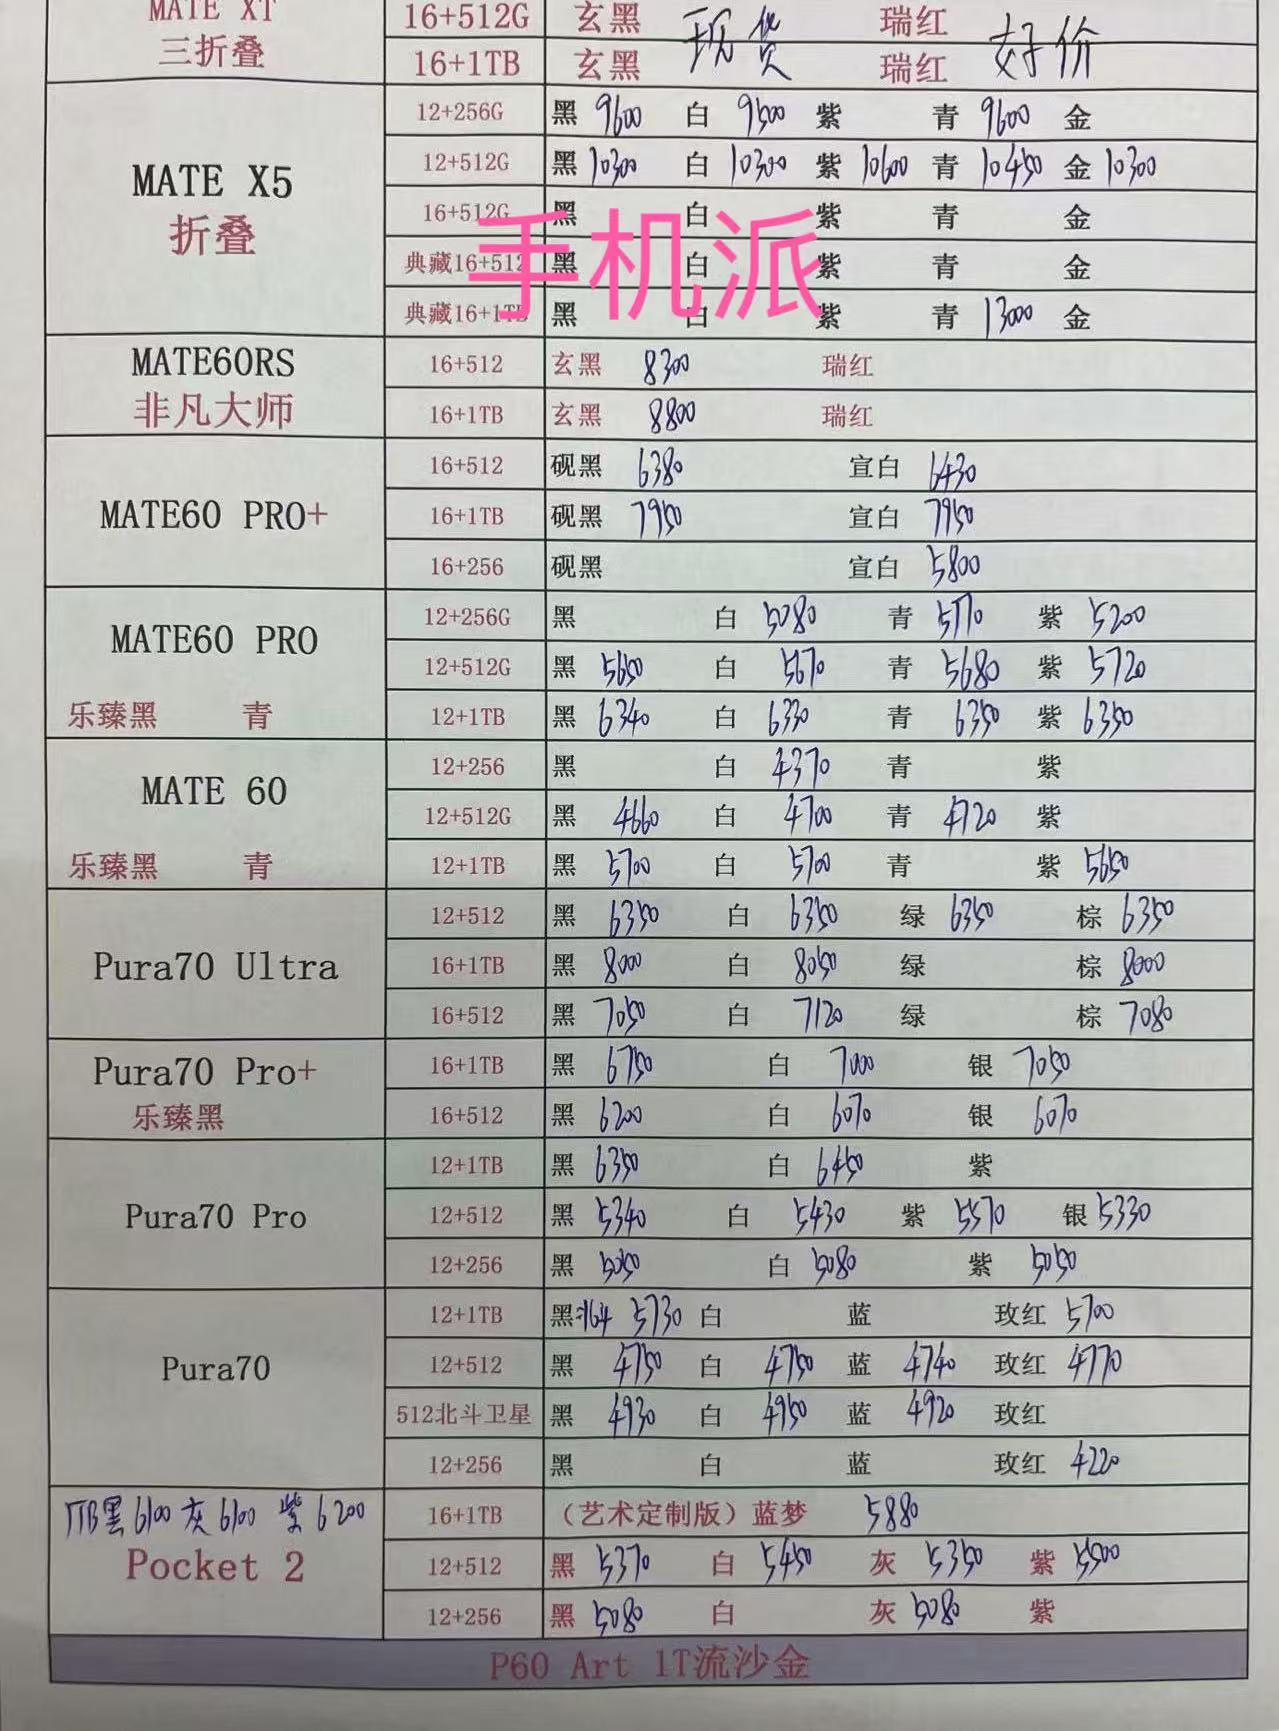 MATE XT
三折叠
16+512G 玄黑 现货 瑞红 好价
16+1TB 玄黑 瑞红
MATE X5
折叠
12+256G 黑 9600 白 9500 紫 青 9600 金
12+512G 黑 10300 白 10300 紫 10600 青 10450 金 10300
16+512G 黑 白 紫 青 金
典藏16+512 黑 白 紫 青 金
典藏16+1TB 黑 白 紫 青 13000 金
手机派
MATE60RS
非凡大师
16+512 玄黑 8300 瑞红
16+1TB 玄黑 8800 瑞红
MATE60 PRO+
16+512 砚黑 6380 宣白 6430
16+1TB 砚黑 7950 宣白 7950
16+256 砚黑 宣白 5800
MATE60 PRO
乐臻黑 青
12+256G 黑 白 5080 青 5170 紫 5200
12+512G 黑 5650 白 5670 青 5680 紫 5720
12+1TB 黑 6340 白 6330 青 6350 紫 6350
MATE 60
乐臻黑 青
12+256 黑 白 4370 青 紫
12+512G 黑 4660 白 4700 青 4720 紫
12+1TB 黑 5700 白 5700 青 紫 5650
Pura70 Ultra
12+512 黑 6350 白 6350 绿 6350 棕 6350
16+1TB 黑 8000 白 8050 绿 棕 8000
16+512 黑 7050 白 7120 绿 棕 7080
Pura70 Pro+
乐臻黑
16+1TB 黑 6750 白 7000 银 7050
16+512 黑 6200 白 6070 银 6070
Pura70 Pro
12+1TB 黑 6350 白 6450 紫
12+512 黑 5340 白 5430 紫 5570 银 5330
12+256 黑 5050 白 5080 紫 5050
Pura70
12+1TB 黑 5730 白 蓝 玫红 5700
12+512 黑 4750 白 4750 蓝 4740 玫红 4770
512北斗卫星 黑 4930 白 4950 蓝 4920 玫红
12+256 黑 白 蓝 玫红 4220
1TB黑6100 灰6100 紫6200
Pocket 2
16+1TB （艺术定制版）蓝梦 5880
12+512 黑 5370 白 5450 灰 5350 紫 5500
12+256 黑 5080 白 灰 5080 紫
P60 Art 1T流沙金